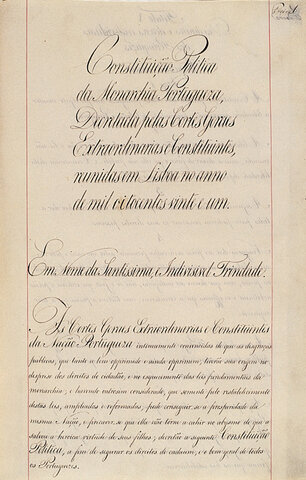 Constituição Politica
da Monarchia Portugueza,
Decretada pelas Cortes Geraes
Extraordinarias e Constituintes,
reunidas em Lisboa no anno
de mil oitocentos vinte e um.
Em Nome da Santissima, e Indivisivel Trindade.
As Cortes Geraes Extraordinarias e Constituintes
da Nação Portugueza intimamente convencidas de que as desgraças
publicas, que tanto a tem opprimido e ainda opprimem, tiverão sua origem no
desprezo dos direitos do cidadão, e no esquecimento das leis fundamentaes da
monarchia; e havendo outrosim considerado, que somente pelo restabelecimento
destas leis, ampliadas e reformadas, póde conseguir-se a prosperidade da
mesma Nação, e precaver-se, que ella não torne a cahir no abysmo, de que a
salvou a heroica virtude de seus filhos; decretão a seguinte Constituição
Politica, a fim de segurar os direitos de cada um, e o bem geral de todos
os Portuguezes.